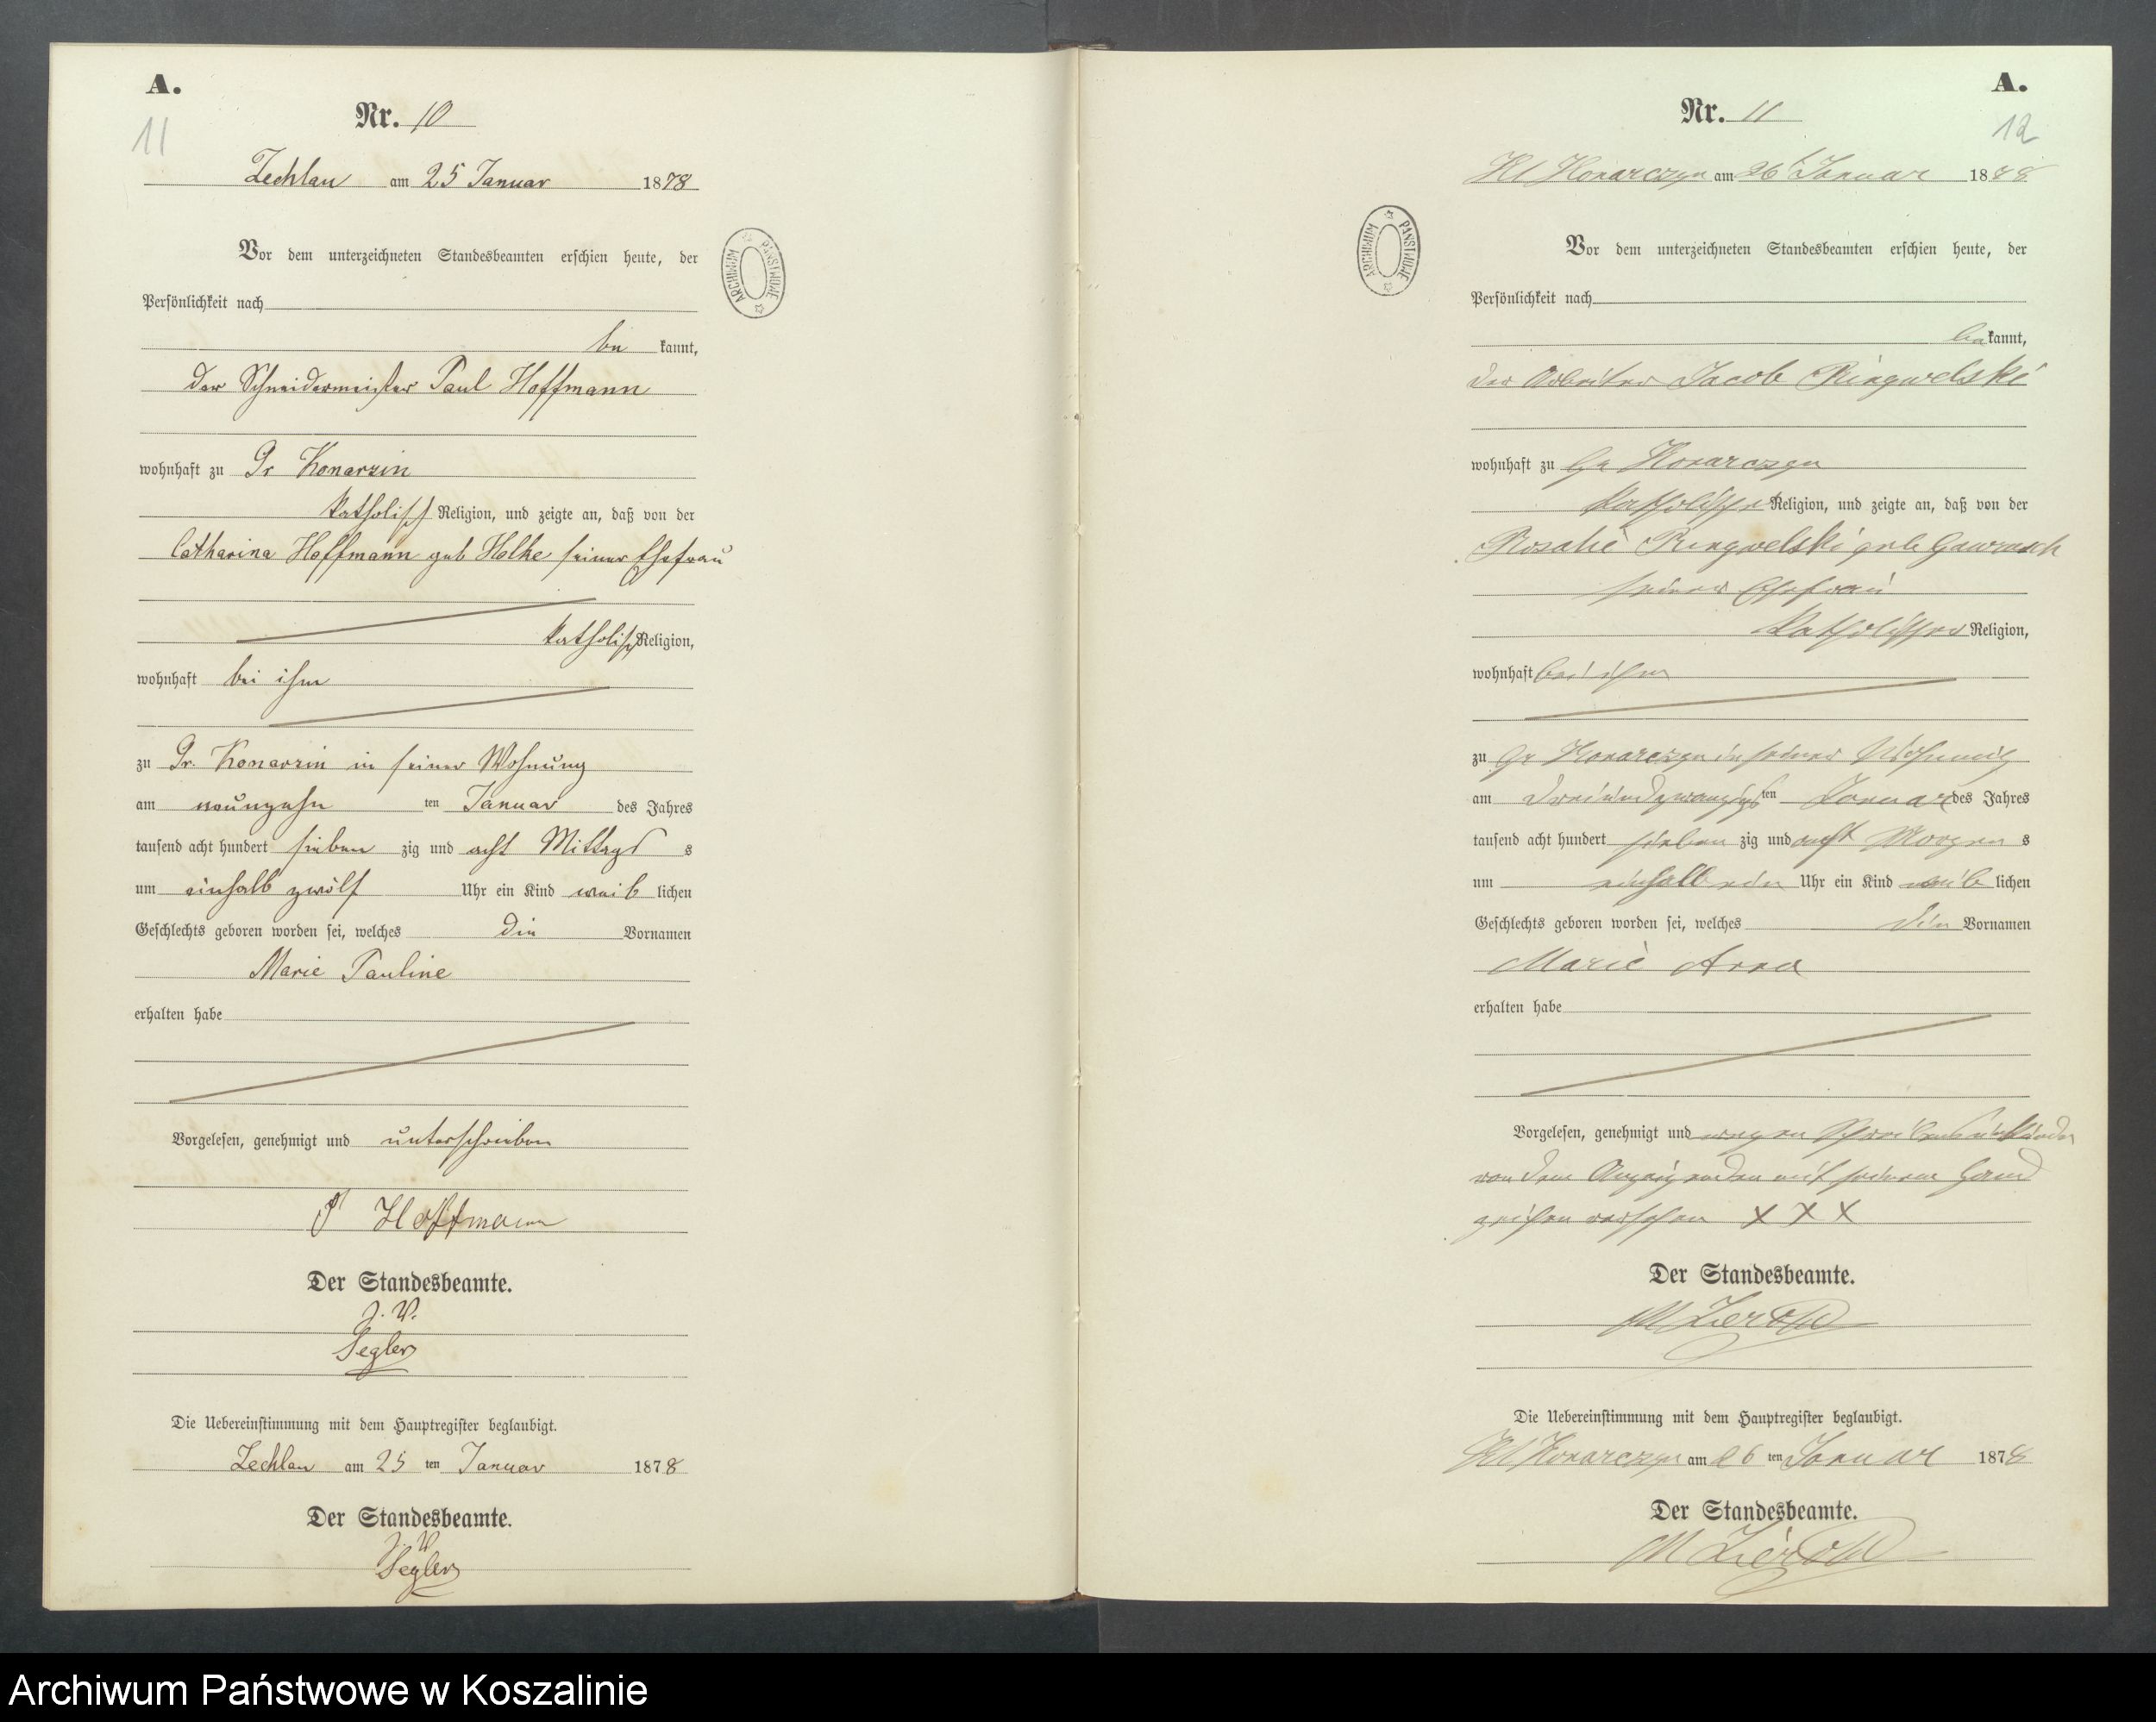 A.
11
Nr. 10
Zechlau am 25 Januar 1878
Vor dem unterzeichneten Standesbeamten erschien heute, der
Persönlichkeit nach
be kannt,
der Schneidermeister Paul Hoffmann
wohnhaft zu Gr Konarzin
katholisch Religion, und zeigte an, daß von der
Catharina Hoffmann geb Holke seiner Ehefrau
katholisch Religion,
wohnhaft bei ihm
zu Gr. Konarzin in seiner Wohnung
am neunzehn ten Januar des Jahres
tausend acht hundert sieben zig und acht Mittags s
um einhalb zwölf Uhr ein Kind weib lichen
Geschlechts geboren worden sei, welches die Vornamen
Marie Pauline
erhalten habe
Vorgelesen, genehmigt und unterschrieben
P Hoffmann
Der Standesbeamte.
J. V.
Segler
Die Uebereinstimmung mit dem Hauptregister beglaubigt.
Zechlau am 25 ten Januar 1878
Der Standesbeamte.
J. V
Segler
A.
12
Nr. 11
Kl Konarczyn am 26 Januar 1878
Vor dem unterzeichneten Standesbeamten erschien heute, der
Persönlichkeit nach
be kannt,
der Arbeiter Jacob Ringwelski
wohnhaft zu Gr Konarczyn
katholischer Religion, und zeigte an, daß von der
Rosalie Ringwelski geb
seiner Ehefrau
katholischer Religion,
wohnhaft bei ihm
zu Gr Konarczyn in seiner Wohnung
am dreiundzwanzigsten ten Januar des Jahres
tausend acht hundert sieben zig und acht Morgen s
um einhalb ein Uhr ein Kind weib lichen
Geschlechts geboren worden sei, welches die Vornamen
Marie Anna
erhalten habe
Vorgelesen, genehmigt und wegen Schreibensunkunde
von dem Anzeigenden mit seinem Hand
zeichen versehen X X X
Der Standesbeamte.
Die Uebereinstimmung mit dem Hauptregister beglaubigt.
Kl Konarczyn am 26 ten Januar 1878
Der Standesbeamte.
ARCHIWUM PAŃSTWOWE
ARCHIWUM PAŃSTWOWE
Archiwum Państwowe w Koszalinie